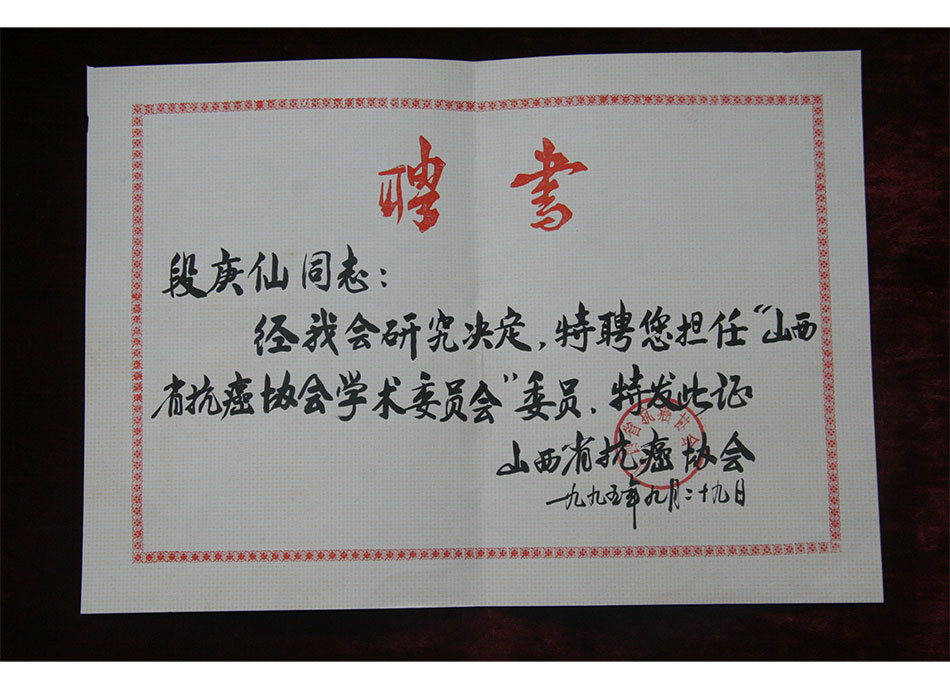 聘书
段庚仙同志：
经我会研究决定，特聘您担任“山西
省抗癌协会学术委员会”委员，特发此证
山西省抗癌协会
一九九五年九月二十九日